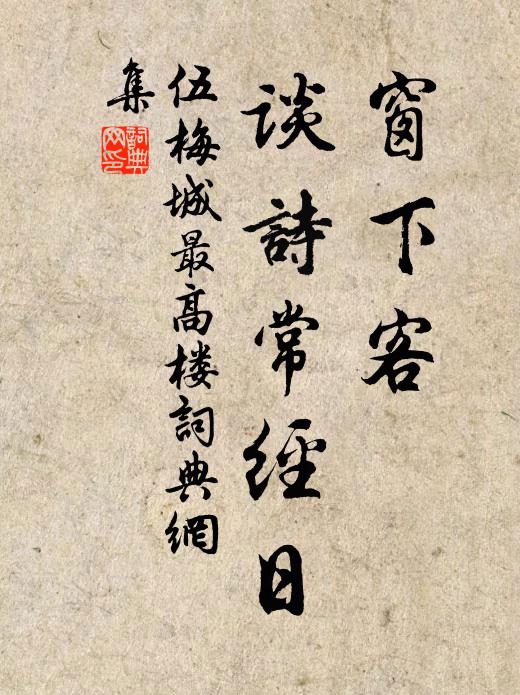 窗下客
談詩常經日
伍梅城最高楼詞典網
集
詞典网印